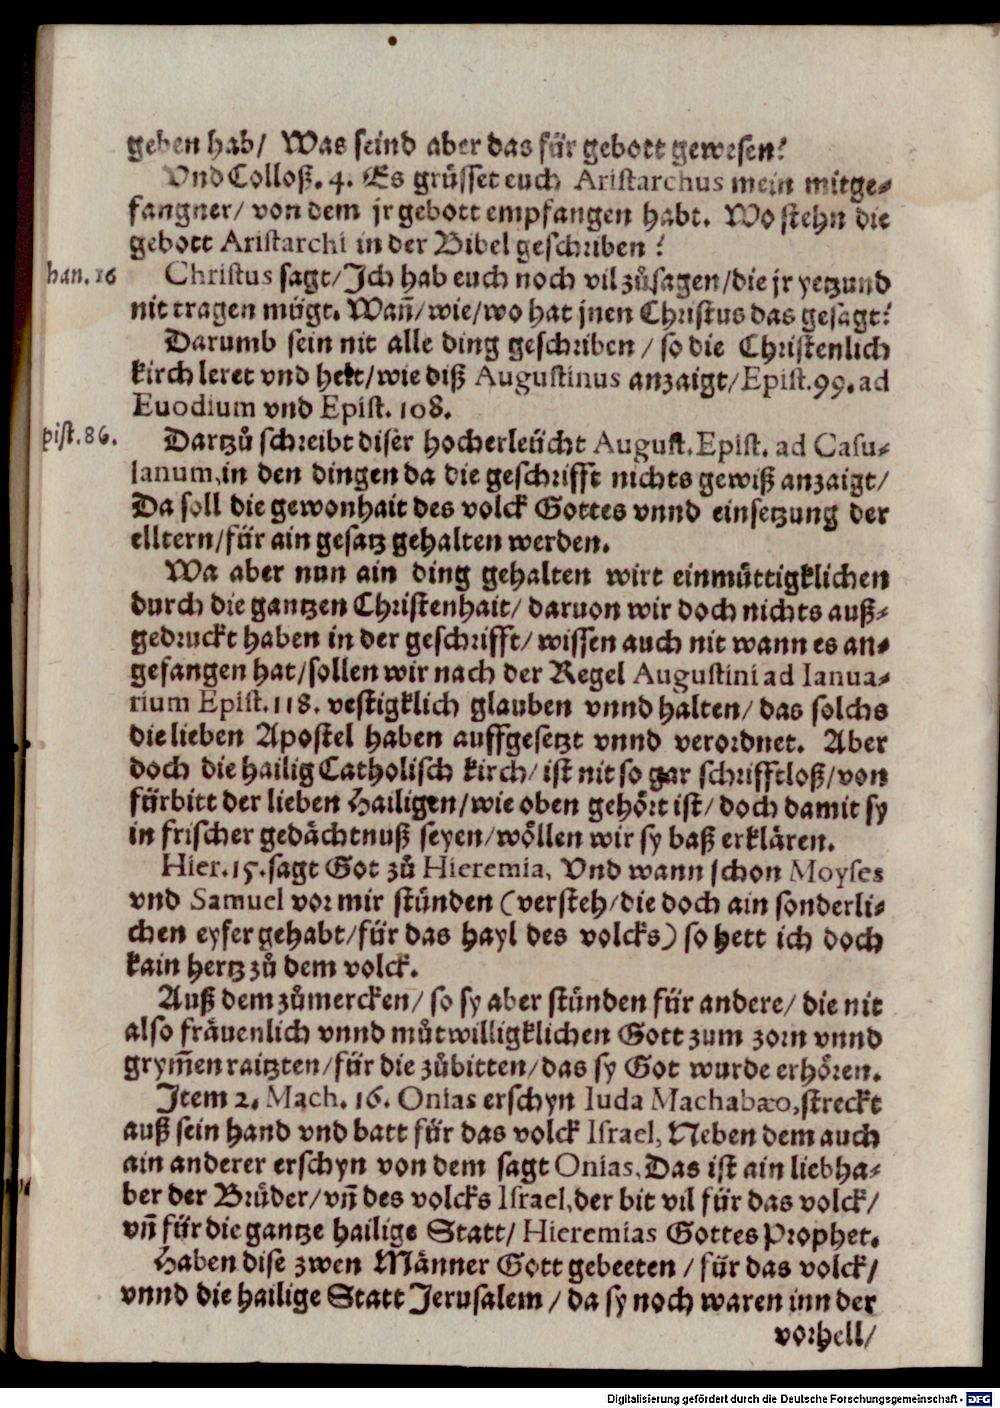 geben hab/ Was seind aber das für gebott gewesen?
Vnd Colloß. 4. Es grüsset euch Aristarchus mein mitge-
fangner/ von dem jr gebott empfangen habt. Wo stehn die
gebott Aristarchi in der Bibel geschriben?
han. 16
Christus sagt/ Ich hab euch noch vil zůsagen/ die jr yetzund
nit tragen mügt. Wañ/ wie/ wo hat jnen Christus das gesagt?
Darumb sein nit alle ding geschriben/ so die Christenlich
kirch leret vnd helt/ wie diß Augustinus anzaigt/ Epist. 99. ad
Euodium vnd Epist. 108.
pist. 86.
Dartzů schreibt diser hocherleücht August. Epist. ad Casu-
lanum, in den dingen da die geschrifft nichts gewiß anzaigt/
Da soll die gewonhait des volck Gottes vnnd einsetzung der
elltern/ für ain gesatz gehalten werden.
Wa aber nun ain ding gehalten wirt einmüttigklichen
durch die gantzen Christenhait/ daruon wir doch nichts auß-
gedruckt haben in der geschrifft/ wissen auch nit wann es an-
gefangen hat/ sollen wir nach der Regel Augustini ad Ianua-
rium Epist. 118. vestigklich glauben vnnd halten/ das solchs
die lieben Apostel haben auffgesetzt vnnd verordnet. Aber
doch die hailig Catholisch kirch/ ist nit so gar schrifftloß/ von
fürbitt der lieben Hailigen/ wie oben gehört ist/ doch damit sy
in frischer gedächtnuß seyen/ wöllen wir sy baß erklären.
Hier. 15. sagt Got zů Hieremia, Vnd wann schon Moyses
vnd Samuel vor mir stünden (versteh/ die doch ain sonderli-
chen eyfer gehabt/ für das hayl des volcks) so hett ich doch
kain hertz zů dem volck.
Auß dem zůmercken/ so sy aber stünden für andere/ die nit
also fräuenlich vnnd můtwilligklichen Gott zum zorn vnnd
grym̃en raitzten/ für die zůbitten/ das sy Got wurde erhören.
Item 2. Mach. 16. Onias erschyn Iuda Machabæo, streckt
auß sein hand vnd batt für das volck Israel, Neben dem auch
ain anderer erschyn von dem sagt Onias, Das ist ain liebha-
ber der Brüder/ vñ des volcks Israel, der bit vil für das volck/
vñ für die gantze hailige Statt/ Hieremias Gottes Prophet.
Haben dise zwen Männer Gott gebeeten/ für das volck/
vnnd die hailige Statt Jerusalem/ da sy noch waren inn der
vorhell/
Digitalisierung gefördert durch die Deutsche Forschungsgemeinschaft - DFG